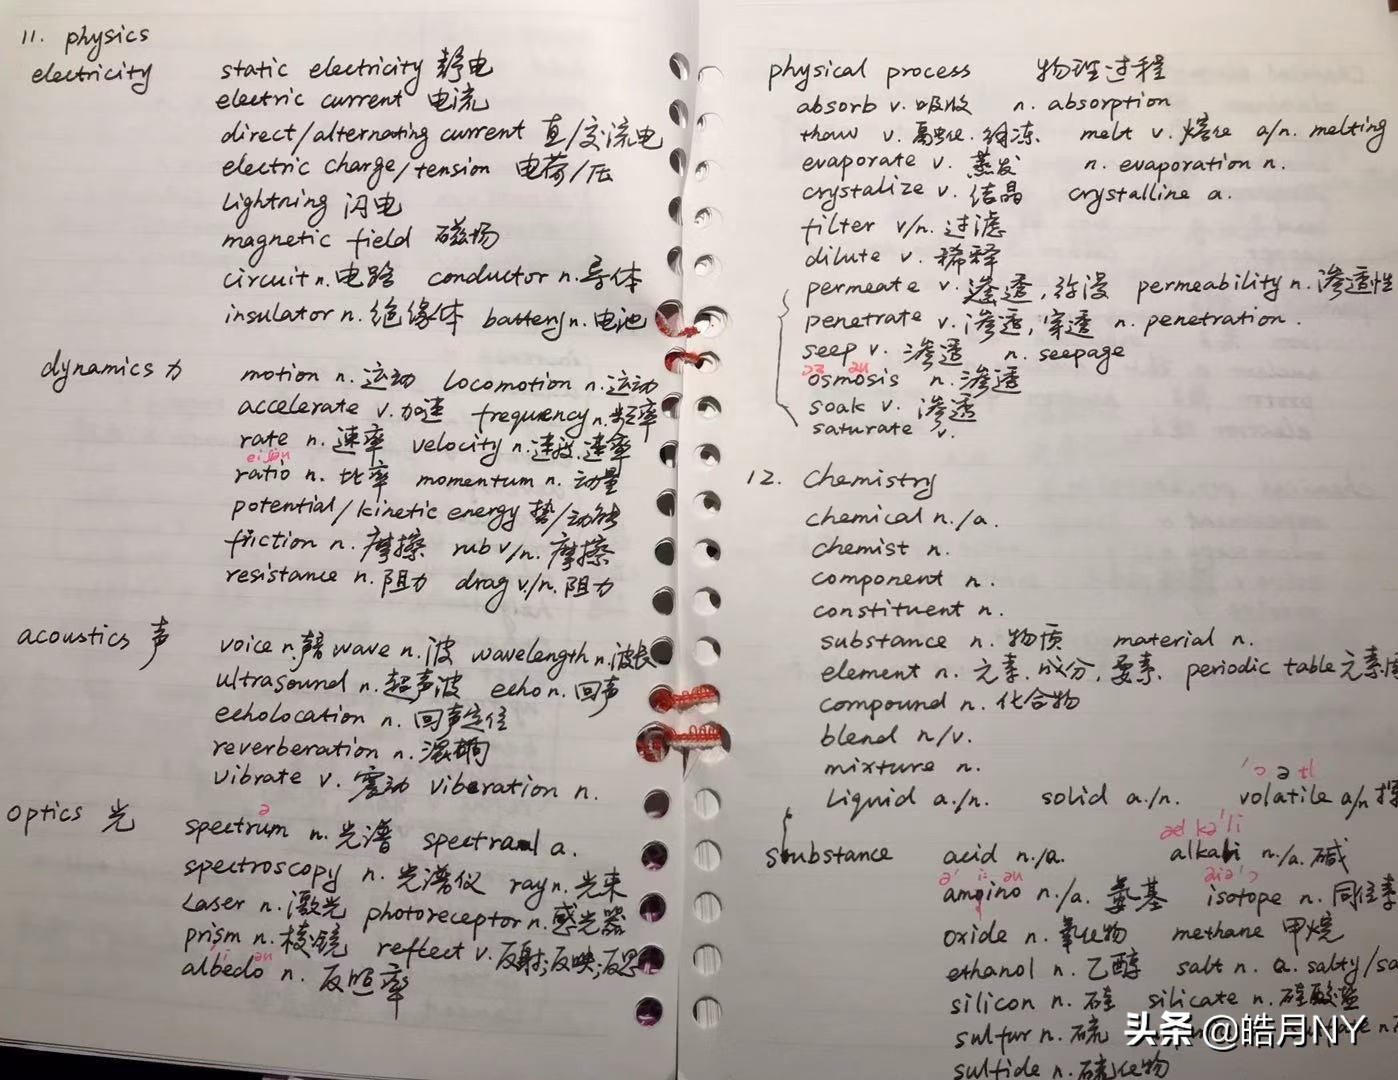 11. physics
electricity static electricity 静电
electric current 电流
direct/alternating current 直/交流电
electric charge/tension 电荷/压
lightning 闪电
magnetic field 磁场
circuit n. 电路 conductor n. 导体
insulator n. 绝缘体 battery n. 电池
dynamics 力 motion n. 运动 locomotion n. 运动
accelerate v. 加速 frequency n. 频率
rate n. 速率 velocity n. 速度, 速率
ratio n. 比率 momentum n. 动量
potential/kinetic energy 势/动能
friction n. 摩擦 rub v/n. 摩擦
resistance n. 阻力 drag v/n. 阻力
acoustics 声 voice n. 声音 wave n. 波 wavelength n. 波长
ultrasound n. 超声波 echo n. 回声
echolocation n. 回声定位
reverberation n. 混响
vibrate v. 震动 viberation n.
optics 光 spectrum n. 光谱 spectral a.
spectroscopy n. 光谱仪 ray n. 光束
Laser n. 激光 photoreceptor n. 感光器
prism n. 棱镜 reflect v. 反射;反映;反思
albedo n. 反照率
physical process 物理过程
absorb v. 吸收 n. absorption
thaw v. 融化, 解冻 melt v. 熔化 a/n. melting
evaporate v. 蒸发 n. evaporation n.
crystalize v. 结晶 crystalline a.
filter v/n. 过滤
dilute v. 稀释
permeate v. 渗透, 弥漫 permeability n. 渗透性
penetrate v. 渗透, 穿透 n. penetration.
seep v. 渗透 n. seepage
osmosis n. 渗透
soak v. 渗透
saturate v.
12. Chemistry
chemical n./a.
chemist n.
component n.
constituent n.
substance n. 物质 material n.
element n. 元素, 成分, 要素. periodic table 元素
compound n. 化合物
blend n/v.
mixture n.
Liquid a./n. solid a./n. volatile a/n
substance acid n./a. alkali n./a. 碱
amino n./a. 氨基 isotope n. 同位素
oxide n. 氧化物 methane 甲烷
ethanol n. 乙醇 salt n. a. salty/sa
silicon n. 硅 silicate n. 硅酸盐
sulfur n. 硫
sulfide n. 硫化物
头条 @皓月NY